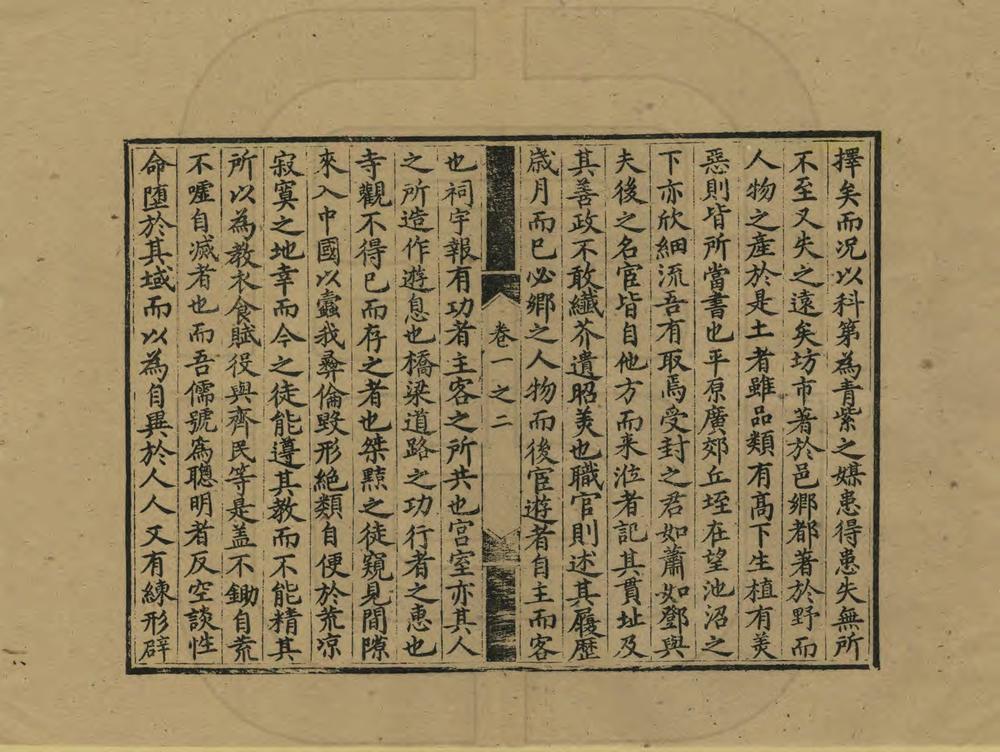 擇矣而况以科第為青紫之媒患得患失無所
不至又失之遠矣坊市著於邑鄉都著於野而
人物之產於是土者雖品類有高下生植有美
惡則皆所當書也平原廣郊丘垤在望池沼之
下亦欣細流吾有取焉受封之君如蕭如鄧與
夫後之名宦皆自他方而来涖者記其貫址及
其善政不敢纖芥遺昭美也職官則述其履歷
歲月而已必鄉之人物而後宦遊者自主而客
卷一之二
也祠宇報有功者主客之所共也宫室亦其人
之所造作遊息也橋梁道路之功行者之惠也
寺觀不得已而存之者也桀黠之徒窺見間隙
來入中國以蠹我彞倫毀形絶類自便於荒凉
寂寞之地幸而今之徒能遵其教而不能精其
所以為教衣食賦役與齊民等是盖不鋤自荒
不噓自滅者也而吾儒號為聰明者反空談性
命墮於其域而以為自異於人人又有練形辟